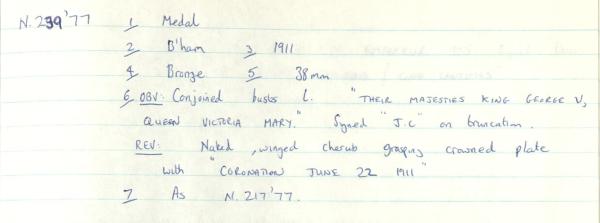 N.239'77 1 Medal
2 B'ham 3 1911
4 Bronze 5 38mm
6 OBV: Conjoined busts L. "THEIR MAJESTIES KING GEORGE V,
QUEEN VICTORIA MARY." Signed "J.C" on truncation.
REV: Naked, winged cherub grasping crowned plate
with "CORONATION JUNE 22 1911"
7 As N.217'77.